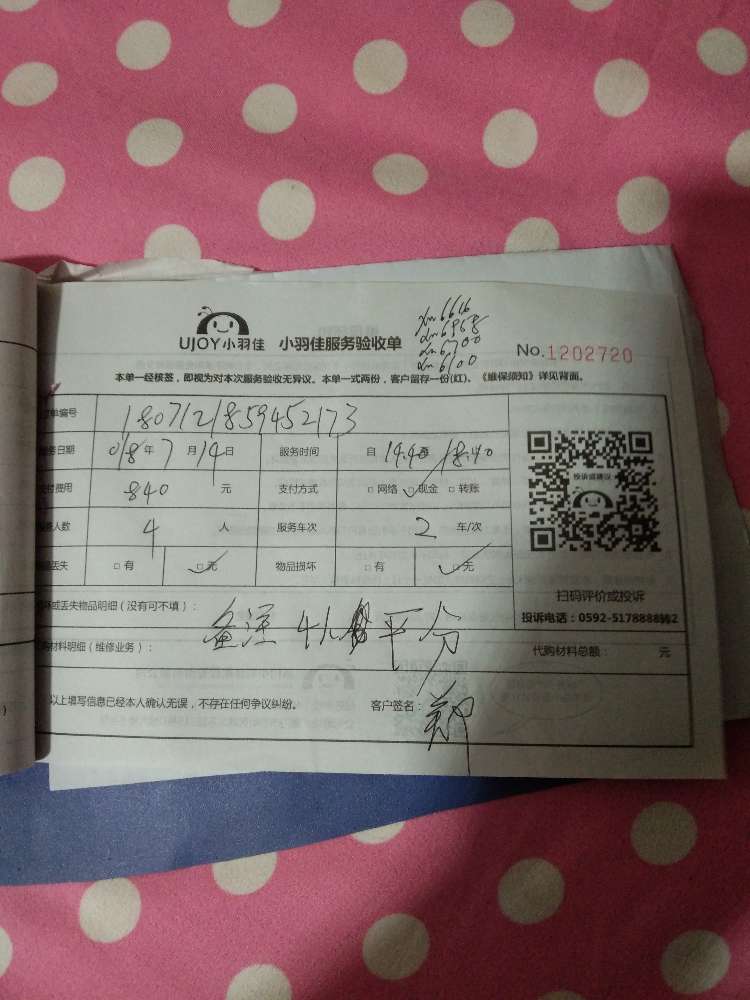 xm6616
xm6968
xm6700
xm6100
UJOY小羽佳 小羽佳服务验收单
No.1202720
本单一经核签，即视为对本次服务验收无异议。本单一式两份，客户留存一份(红)、《维保须知》详见背面。
单编号 1807121859452173
务日期 018年7月14日 服务时间 自 14.40至18.40
付费用 840 元 支付方式 □网络 ☑现金 □转账
人数 4 人 服务车次 2 车/次
丢失 □有 ☑无 物品损坏 □有 ☑无
投诉或建议
扫码评价或投诉
投诉电话：0592-5178888转2
坏或丢失物品明细（没有可不填）：
备注 4人 平分
购材料明细（维修业务）：
代购材料总额： 元
以上填写信息已经本人确认无误，不存在任何争议纠纷。 客户签名： 郑